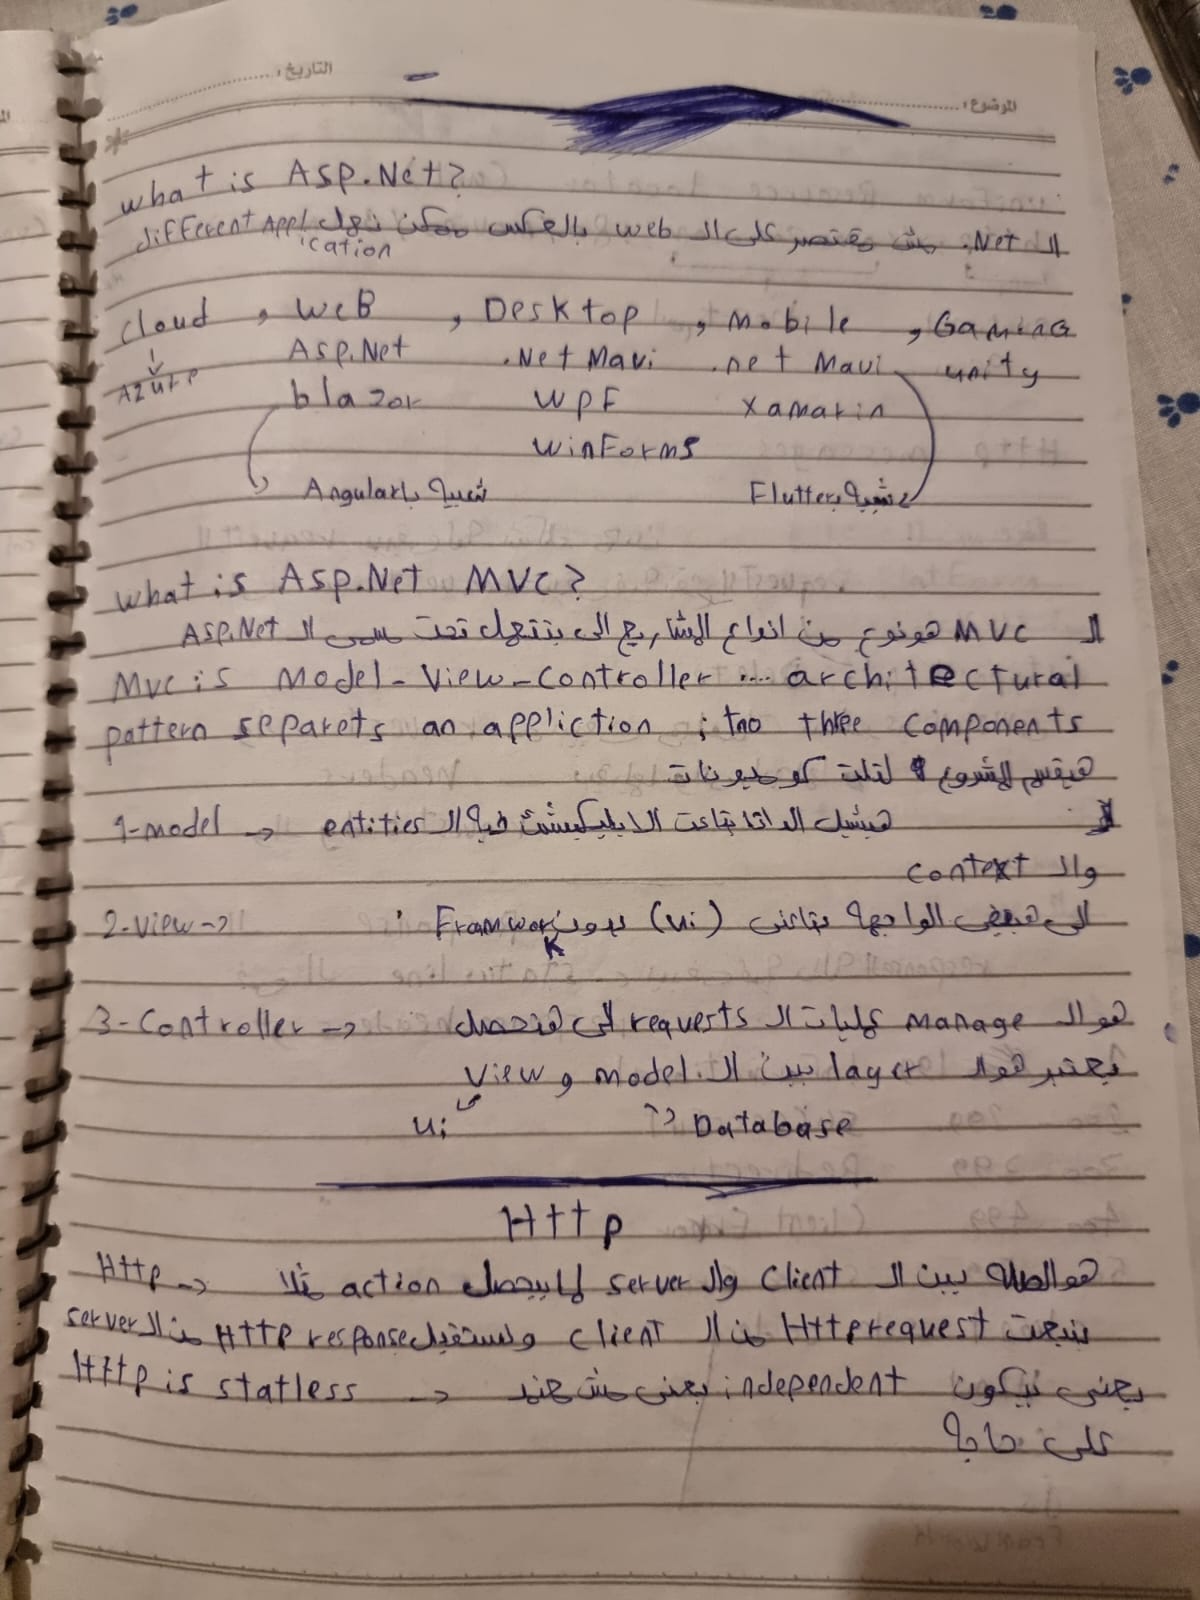 الموضوع: التاريخ:
what is Asp.Net?
الـ Net. مش مقتصر على الـ web بالعكس ممكن نعمل different Appl
ication
cloud , web , Desktop , Mobile , Gaming
Azure Asp.Net .Net Maui .net Maui unity
blazor WPF xamarin
WinForms
شبيه بـ Angular شبيه بـ Flutter
what is Asp.Net MVC?
الـ MVC هو نوع من انواع المشاريع الى بتتعمل تحت مسمى الـ Asp.Net
Mvc is Model-View-Controller .... architectural
pattern separets an appliction into three components
هيقسم المشروع لتلت كومبونانت
1-model → هيشيل الداتا بتاعت الابليكيشن فيه الـ entities
والـ context
2-View → الى هيبقى الواجهه بتاعتى (ui) بدون Framwork
3-Controller → هو الـ manage عمليات الـ requests الى هتحصل
يعتبر هو الـ layer بين الـ model و View
ui Database
Http
Http → هو الصله بين الـ client والـ server لما بيحصل action مثلا
بتبعت Http request من الـ client وتستقبل Http response من الـ server
Http is statless → يعنى بيكون independent يعنى مش
على حاجه